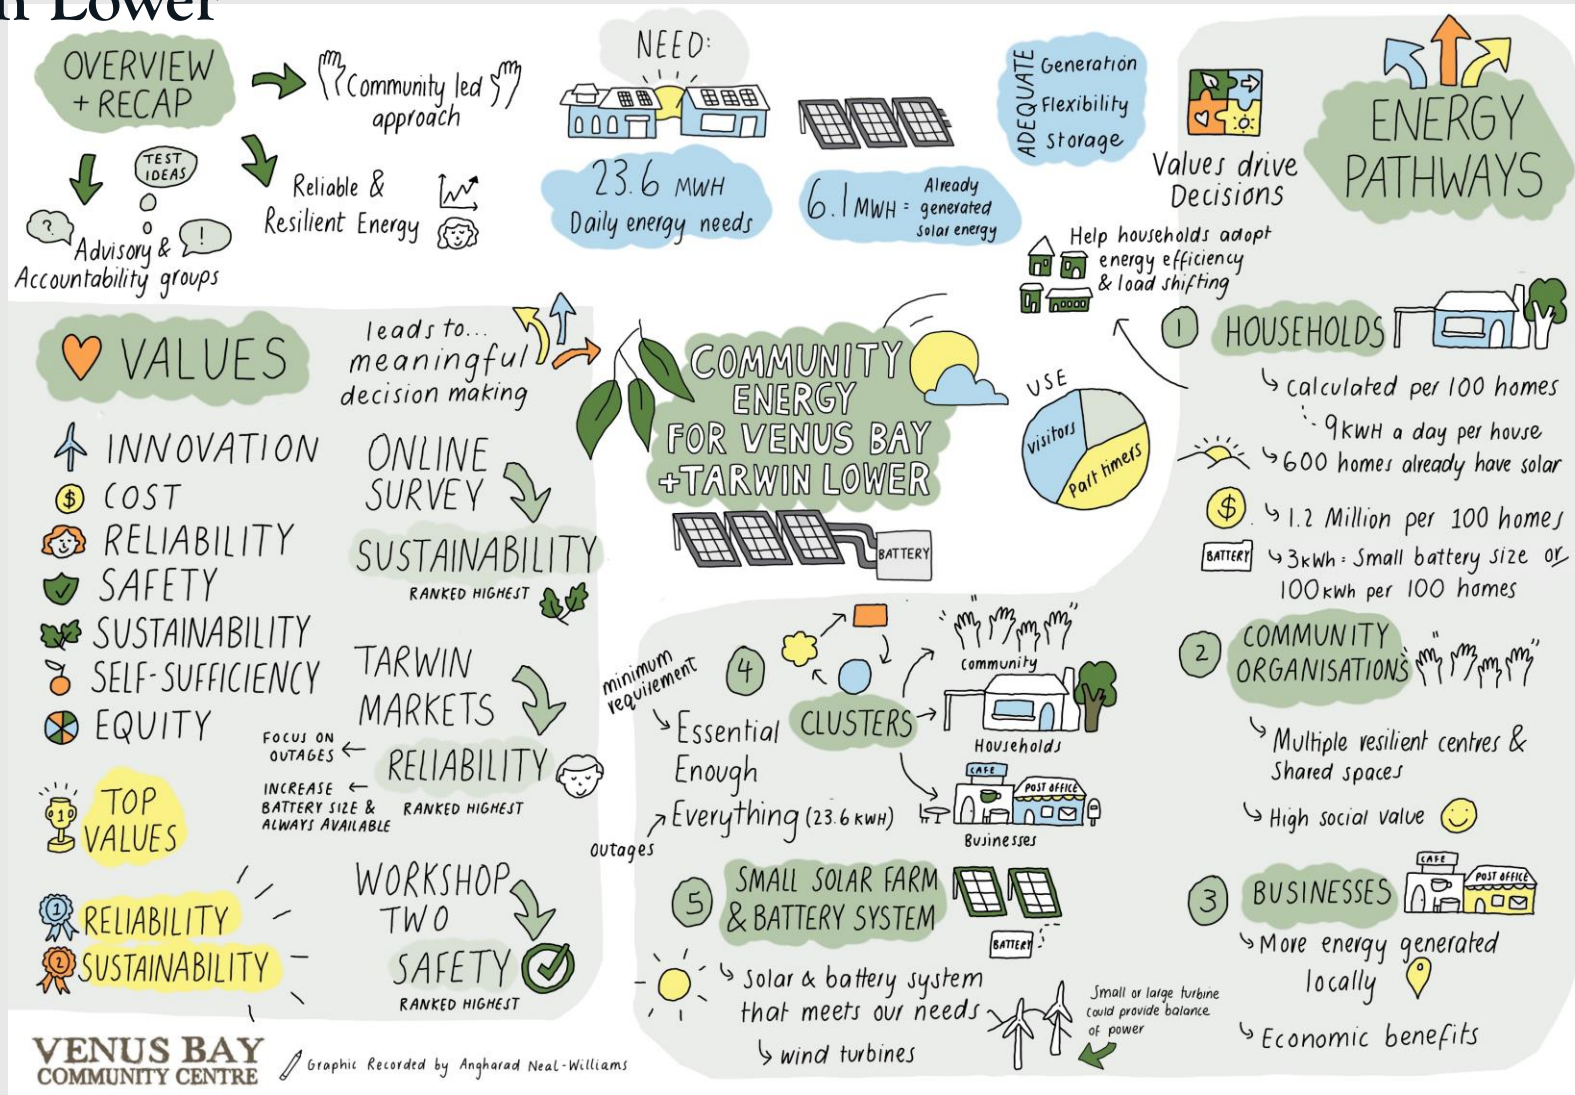 n Lower
OVERVIEW
+ RECAP
Community led
approach
Reliable &
Resilient Energy
TEST
IDEAS
?
!
Advisory &
Accountability groups
NEED:
23.6 MWH
Daily energy needs
6.1 MWH =
Already
generated
solar energy
ADEQUATE
Generation
Flexibility
Storage
Values drive
Decisions
ENERGY
PATHWAYS
Help households adopt
energy efficiency
& load shifting
VALUES
leads to...
meaningful
decision making
INNOVATION
$ COST
RELIABILITY
SAFETY
SUSTAINABILITY
SELF-SUFFICIENCY
EQUITY
1
TOP
VALUES
1 RELIABILITY
2 SUSTAINABILITY
ONLINE
SURVEY
SUSTAINABILITY
RANKED HIGHEST
TARWIN
MARKETS
RELIABILITY
RANKED HIGHEST
FOCUS ON
OUTAGES
INCREASE
BATTERY SIZE &
ALWAYS AVAILABLE
WORKSHOP
TWO
SAFETY
RANKED HIGHEST
COMMUNITY
ENERGY
FOR VENUS BAY
+TARWIN LOWER
BATTERY
USE
visitors
part timers
1 HOUSEHOLDS
calculated per 100 homes
9KWH a day per house
600 homes already have solar
$ 1.2 Million per 100 homes
BATTERY
3kWh = Small battery size or
100kWh per 100 homes
2 COMMUNITY
ORGANISATIONS
Multiple resilient centres &
Shared spaces
High social value
3 BUSINESSES
CAFE
POST OFFICE
More energy generated
locally
Economic benefits
4 CLUSTERS
minimum
requirement
Essential
Enough
Everything (23.6 KWH)
outages
Community
Households
CAFE
POST OFFICE
Businesses
5 SMALL SOLAR FARM
& BATTERY SYSTEM
BATTERY
Solar & battery system
that meets our needs
wind turbines
Small or large turbine
could provide balance
of power
VENUS BAY
COMMUNITY CENTRE
Graphic Recorded by Angharad Neal-Williams